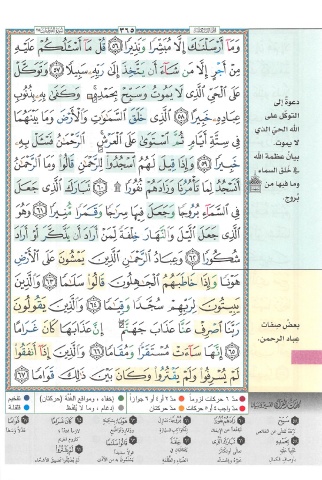 ٣٦٥
وَمَآ أَرْسَلْنَٰكَ إِلَّا مُبَشِّرًا وَنَذِيرًا ٥٦ قُلْ مَآ أَسْـَٔلُكُمْ عَلَيْهِ
مِنْ أَجْرٍ إِلَّا مَن شَآءَ أَن يَتَّخِذَ إِلَىٰ رَبِّهِۦ سَبِيلًا ٥٧ وَتَوَكَّلْ
عَلَى ٱلْحَىِّ ٱلَّذِى لَا يَمُوتُ وَسَبِّحْ بِحَمْدِهِۦ ۚ وَكَفَىٰ بِهِۦ بِذُنُوبِ
عِبَادِهِۦ خَبِيرًا ٥٨ ٱلَّذِى خَلَقَ ٱلسَّمَٰوَٰتِ وَٱلْأَرْضَ وَمَا بَيْنَهُمَا
فِى سِتَّةِ أَيَّامٍ ثُمَّ ٱسْتَوَىٰ عَلَى ٱلْعَرْشِ ۚ ٱلرَّحْمَٰنُ فَسْـَٔلْ بِهِۦ
خَبِيرًا ٥٩ وَإِذَا قِيلَ لَهُمُ ٱسْجُدُوا۟ لِلرَّحْمَٰنِ قَالُوا۟ وَمَا ٱلرَّحْمَٰنُ
أَنَسْجُدُ لِمَا تَأْمُرُنَا وَزَادَهُمْ نُفُورًا ۩ ٦٠ تَبَارَكَ ٱلَّذِى جَعَلَ
فِى ٱلسَّمَآءِ بُرُوجًا وَجَعَلَ فِيهَا سِرَٰجًا وَقَمَرًا مُّنِيرًا ٦١ وَهُوَ
ٱلَّذِى جَعَلَ ٱلَّيْلَ وَٱلنَّهَارَ خِلْفَةً لِّمَنْ أَرَادَ أَن يَذَّكَّرَ أَوْ أَرَادَ
شُكُورًا ٦٢ وَعِبَادُ ٱلرَّحْمَٰنِ ٱلَّذِينَ يَمْشُونَ عَلَى ٱلْأَرْضِ
هَوْنًا وَإِذَا خَاطَبَهُمُ ٱلْجَٰهِلُونَ قَالُوا۟ سَلَٰمًا ٦٣ وَٱلَّذِينَ
يَبِيتُونَ لِرَبِّهِمْ سُجَّدًا وَقِيَٰمًا ٦٤ وَٱلَّذِينَ يَقُولُونَ
رَبَّنَا ٱصْرِفْ عَنَّا عَذَابَ جَهَنَّمَ ۖ إِنَّ عَذَابَهَا كَانَ غَرَامًا
٦٥ إِنَّهَا سَآءَتْ مُسْتَقَرًّا وَمُقَامًا ٦٦ وَٱلَّذِينَ إِذَآ أَنفَقُوا۟
لَمْ يُسْرِفُوا۟ وَلَمْ يَقْتُرُوا۟ وَكَانَ بَيْنَ ذَٰلِكَ قَوَامًا ٦٧
دعوة إلى
التوكل على
الله الحيّ الذي
لا يموت.
بيان عظمة الله
في خلق السماء
وما فيها من
بُروج.
بعض صفات
عباد الرحمن.
مدّ ٦ حركات لزوماً
مدّ ٢ أو ٤ أو ٦ جوازاً
إخفاء، ومواقع الغُنّة (حركتان)
تفخيم
مدّ واجب ٤ أو ٥ حركات
مدّ حركتان
إدغام، وما لا يُلفظ
قلقلة